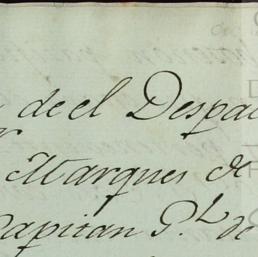 de el Despac
Marques de
Capitan G.L de